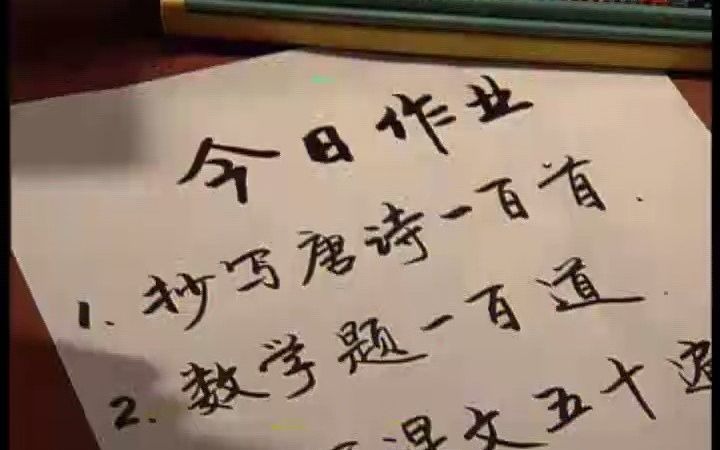 今日作业
1. 抄写唐诗一百首.
2. 数学题一百道.
课文五十遍